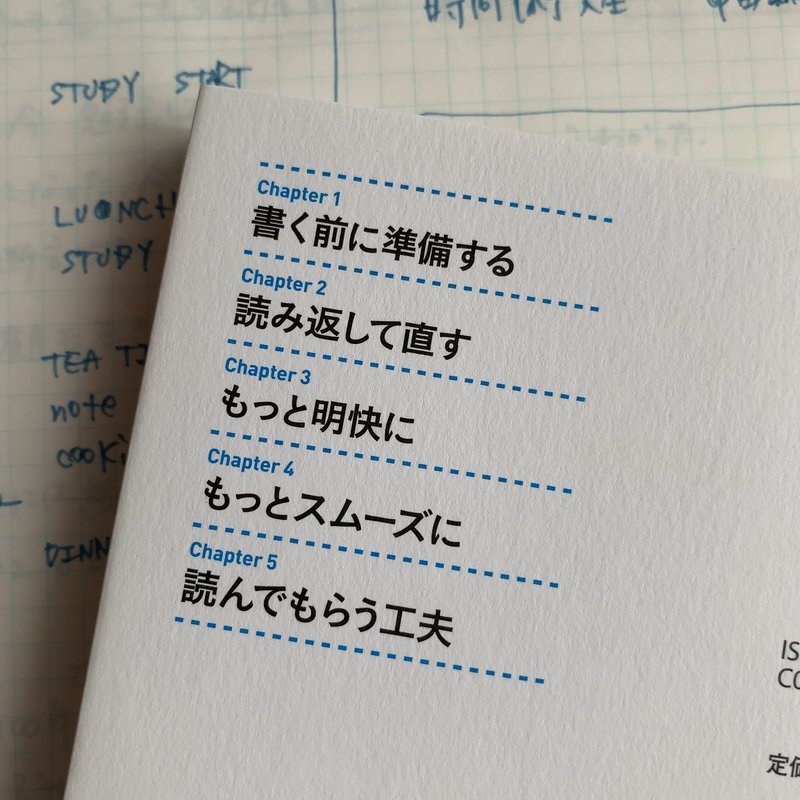 STUDY START
LUONCH
STUDY
TEA
note
DINN
Chapter 1
書く前に準備する
Chapter 2
読み返して直す
Chapter 3
もっと明快に
Chapter 4
もっとスムーズに
Chapter 5
読んでもらう工夫
IS
C0
定価